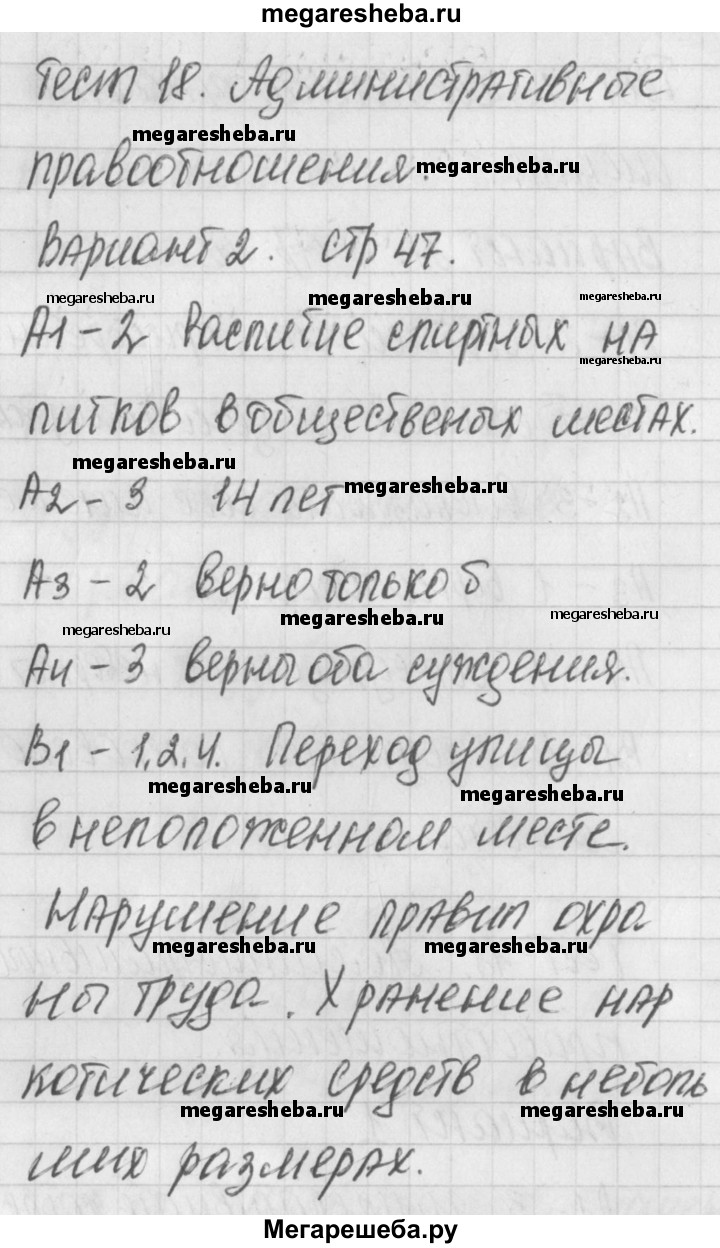 megaresheba.ru
Тест 18. Административные
megaresheba.ru
правоотношения.
megaresheba.ru
Вариант 2. стр 47.
megaresheba.ru megaresheba.ru megaresheba.ru
А1 - 2 Распитие спиртных на
megaresheba.ru
питков в общественых местах.
megaresheba.ru
А2 - 3 14 лет
megaresheba.ru
А3 - 2 верно только б
megaresheba.ru megaresheba.ru
megaresheba.ru
А4 - 3 верны оба суждения.
В1 - 1,2,4. Переход улицы
megaresheba.ru megaresheba.ru
в неположенном месте.
Нарушение правил охра
megaresheba.ru megaresheba.ru
ны труда. Хранение нар
котических средств в неболь
megaresheba.ru megaresheba.ru
ших размерах.
Мегарешеба.ру